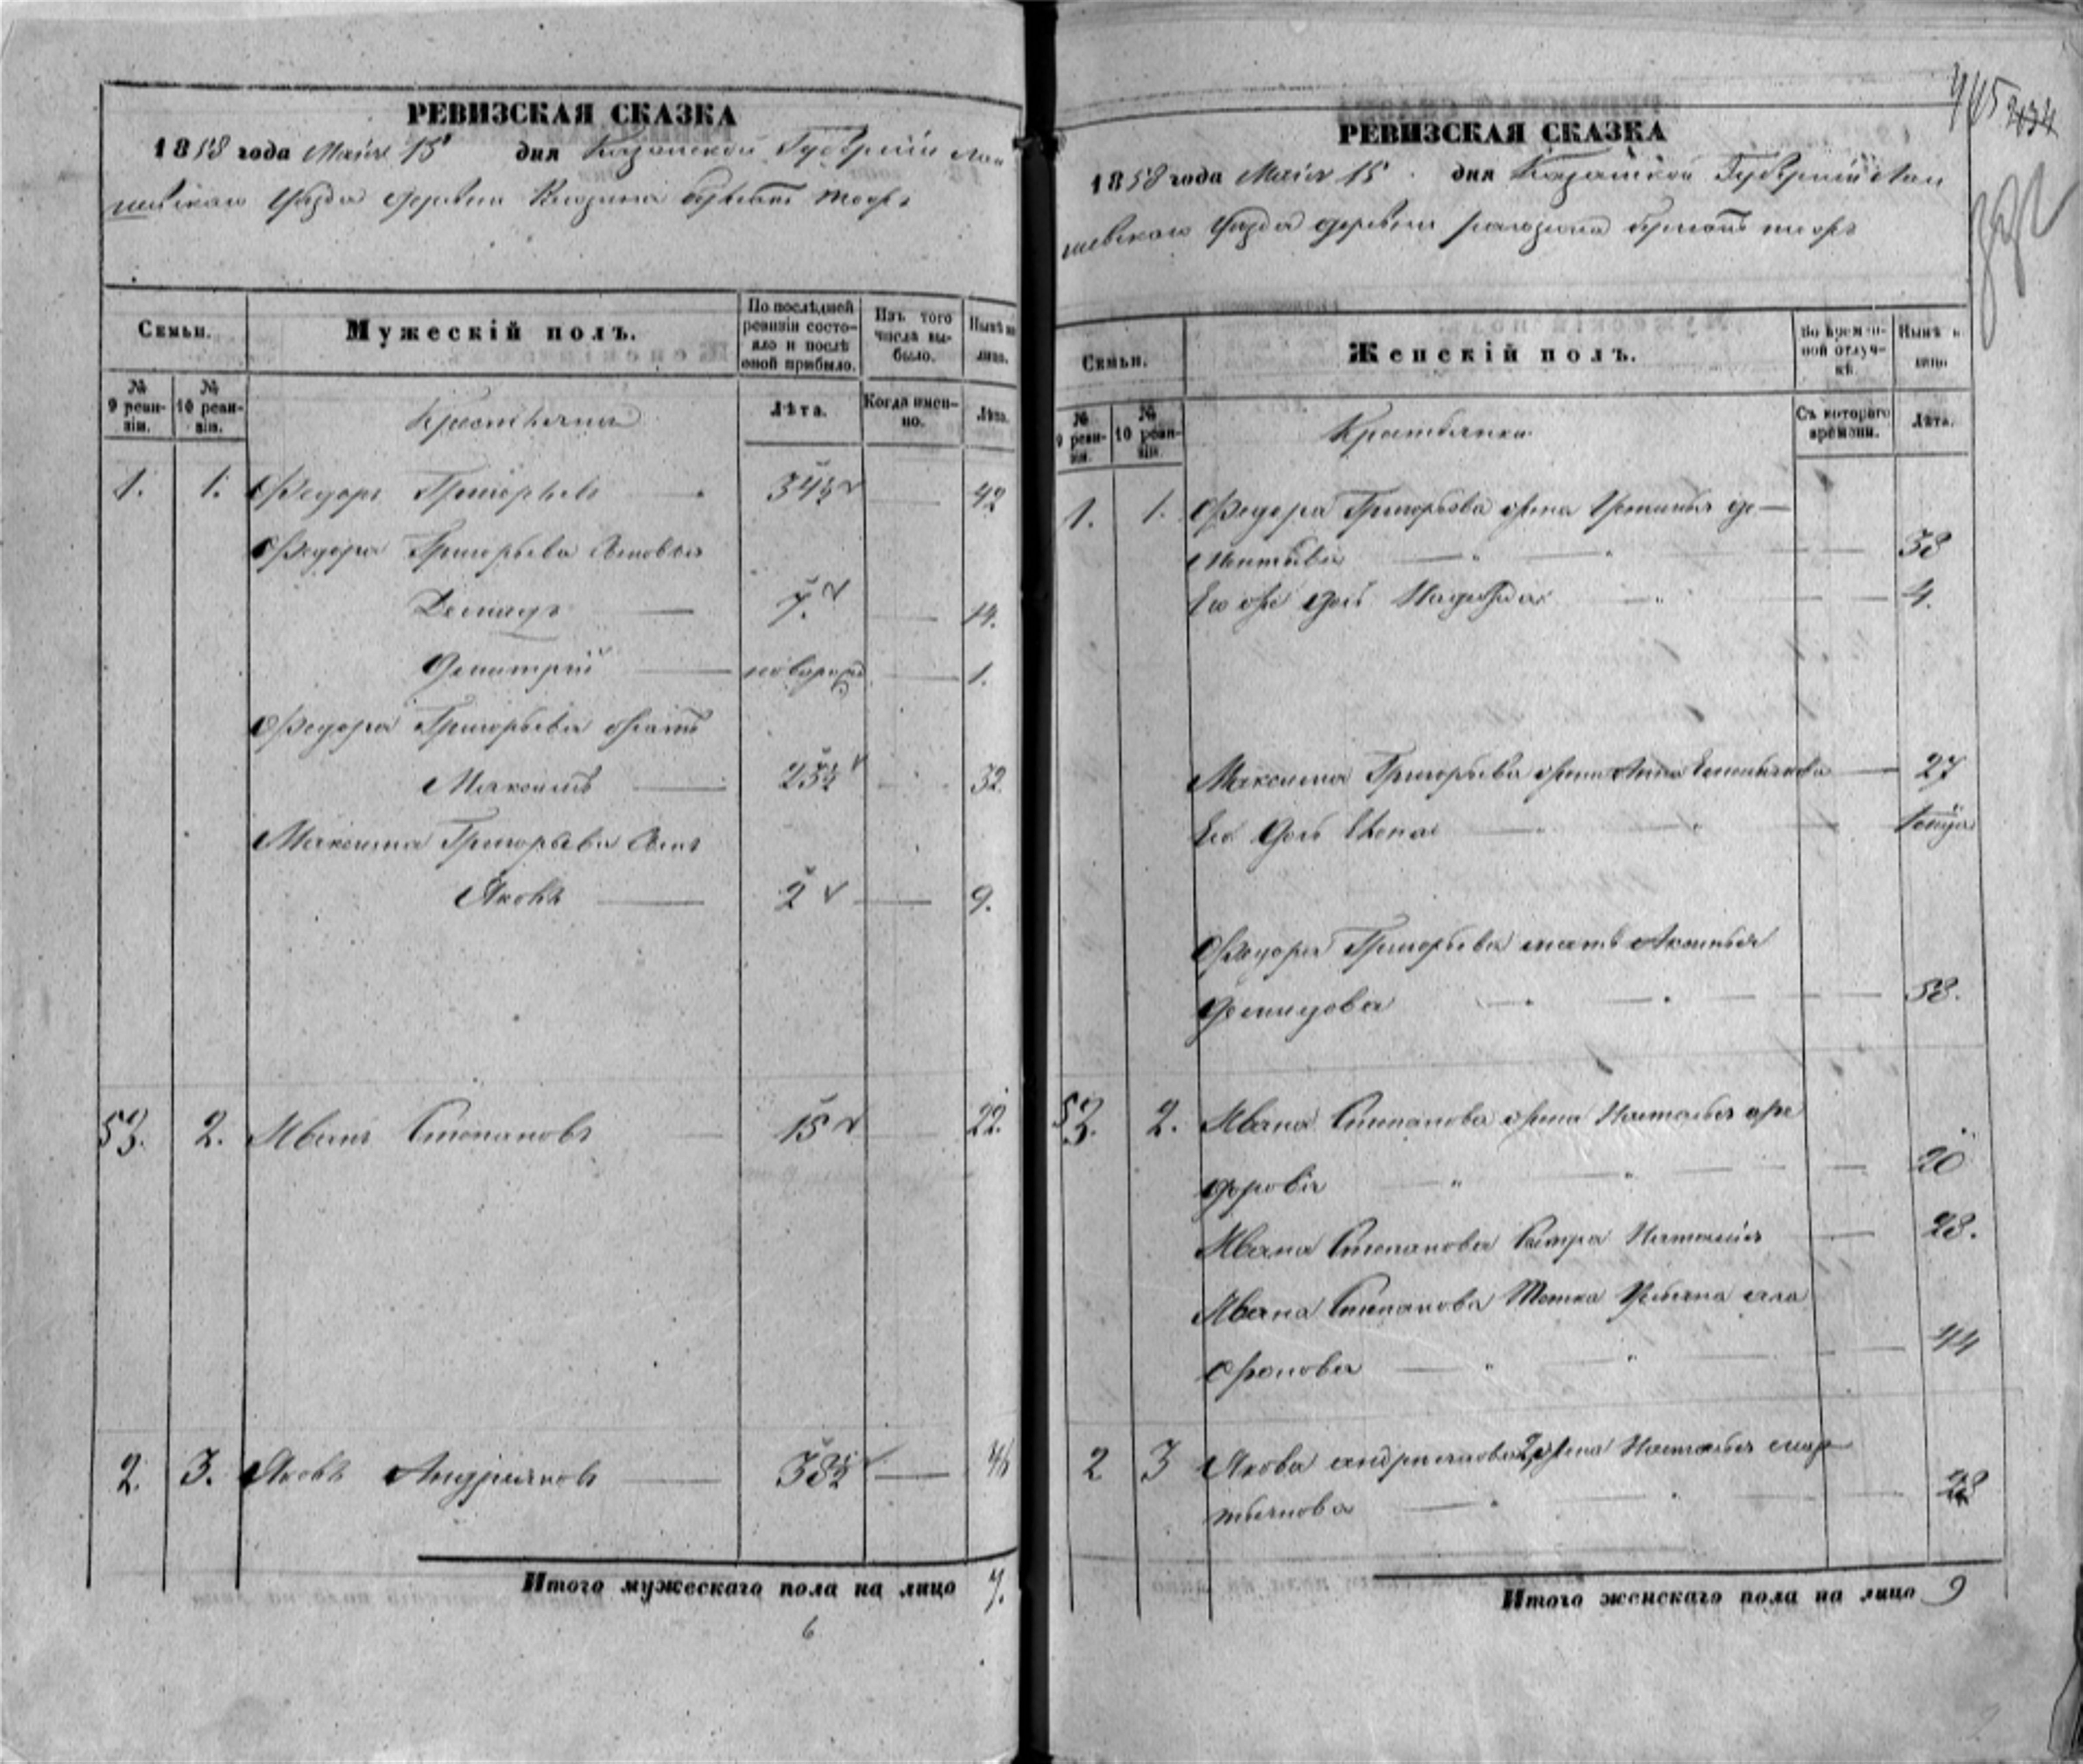 РЕВИЗСКАЯ СКАЗКА
1858 года Маія 15 дня Казанской Губерніи Лаи
шевскаго Уѣзда деревни
Семьи.
Мужескій полъ.
По послѣдней ревизіи состояло и послѣ оной прибыло.
Изъ того числа выбыло.
Нынѣ на лицо.
№ 9 ревизіи.
№ 10 ревизіи.
Крестьяня
Лѣта.
Когда именно.
Лѣта.
1. 1. Федоръ Григорьевъ 34½ 42
Федора Григорьева сыновья
Демидъ 7. 14.
Дмитрій новорожд 1.
Федора Григорьева братъ
Максимъ 23½ 32.
Максима Григорьева сынъ
Яковъ 2 9.
53. 2. Иванъ Степановъ 15 22.
2. 3. Яковъ Андрияновъ 38½ 46
Итого мужескаго пола на лицо 7.
6
445 434
РЕВИЗСКАЯ СКАЗКА
1858 года Маія 15 дня Казанской Губерніи Лаи
шевскаго Уѣзда деревни
Семьи.
Женскій полъ.
Во временной отлучкѣ.
Нынѣ на лицо.
№ 9 ревизіи.
№ 10 ревизіи.
Крестьянки
Съ котораго времени.
Лѣта.
1. 1. Федора Григорьева жена Устинья де
ментьева 38
Его же дочь Надежда 4.
Максима Григорьева жена Анна Емельянова 27
Его дочь Елена 1 года
Федора Григорьева мать Аксинья
Демидова 58.
53. 2. Ивана Степанова жена Наталья фе
дорова 20
Ивана Степанова сестра Наталья 28.
Ивана Степанова Тетка Ульяна ага
фонова 44
2 3 Якова андриянова 2 жена Наталья мар
тьянова 28
Итого женскаго пола на лицо 9